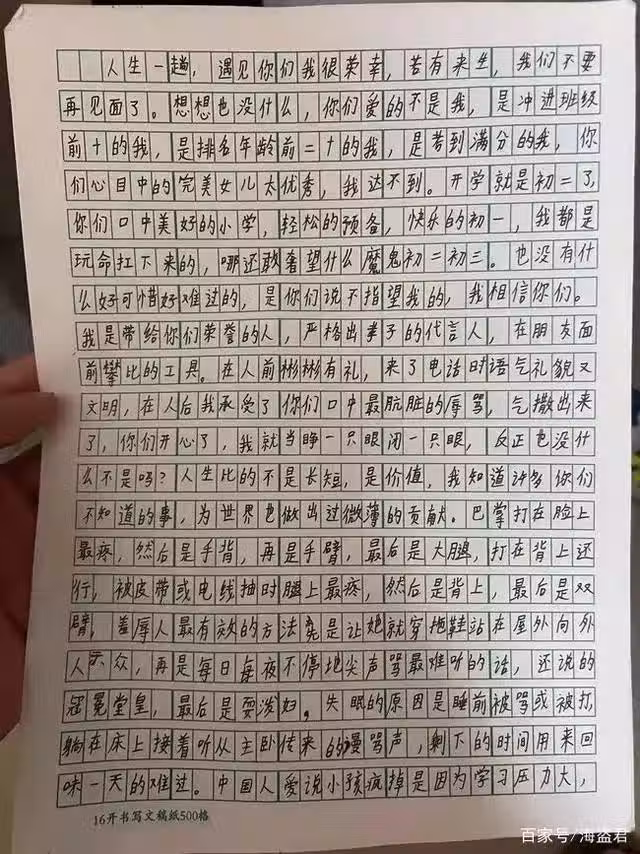 人生一趟，遇见你们我很荣幸，苦有来生，我们不要
再见面了。想想也没什么，你们爱的不是我，是冲进班级
前十的我，是排名年龄前二十的我，是考到满分的我，你
们心目中的完美女儿太优秀，我达不到。开学就是初二了，
你们口中美好的小学，轻松的预备，快乐的初一，我都是
玩命扛下来的，哪还敢奢望什么魔鬼初二初三。也没有什
么好可惜好难过的，是你们说不指望我的，我相信你们。
我是带给你们荣誉的人，严格出孝子的代言人，在朋友面
前攀比的工具。在人前彬彬有礼，来了电话时语气礼貌又
文明，在人后我承受了你们口中最肮脏的辱骂，气撒出来
了，你们开心了，我就当睁一只眼闭一只眼，反正也没什
么不是吗？人生比的不是长短，是价值，我知道许多你们
不知道的事，为世界也做出过微薄的贡献。巴掌打在脸上
最疼，然后是手背，再是手臂，最后是大腿，打在背上还
行，被皮带或电线抽时腿上最疼，然后是背上，最后是双
臂，羞辱人最有效的方法竟是让她就穿拖鞋站在屋外向外
人示众，再是每日每夜不停地尖声骂最难听的话，还说的
冠冕堂皇，最后是耍泼妇。失眠的原因是睡前被骂或被打，
躺在床上接着听从主卧传来的谩骂声，剩下的时间用来回
味一天的难过。中国人爱说小孩疯掉是因为学习压力大，
16开书写文稿纸500格
百家号/海盗君